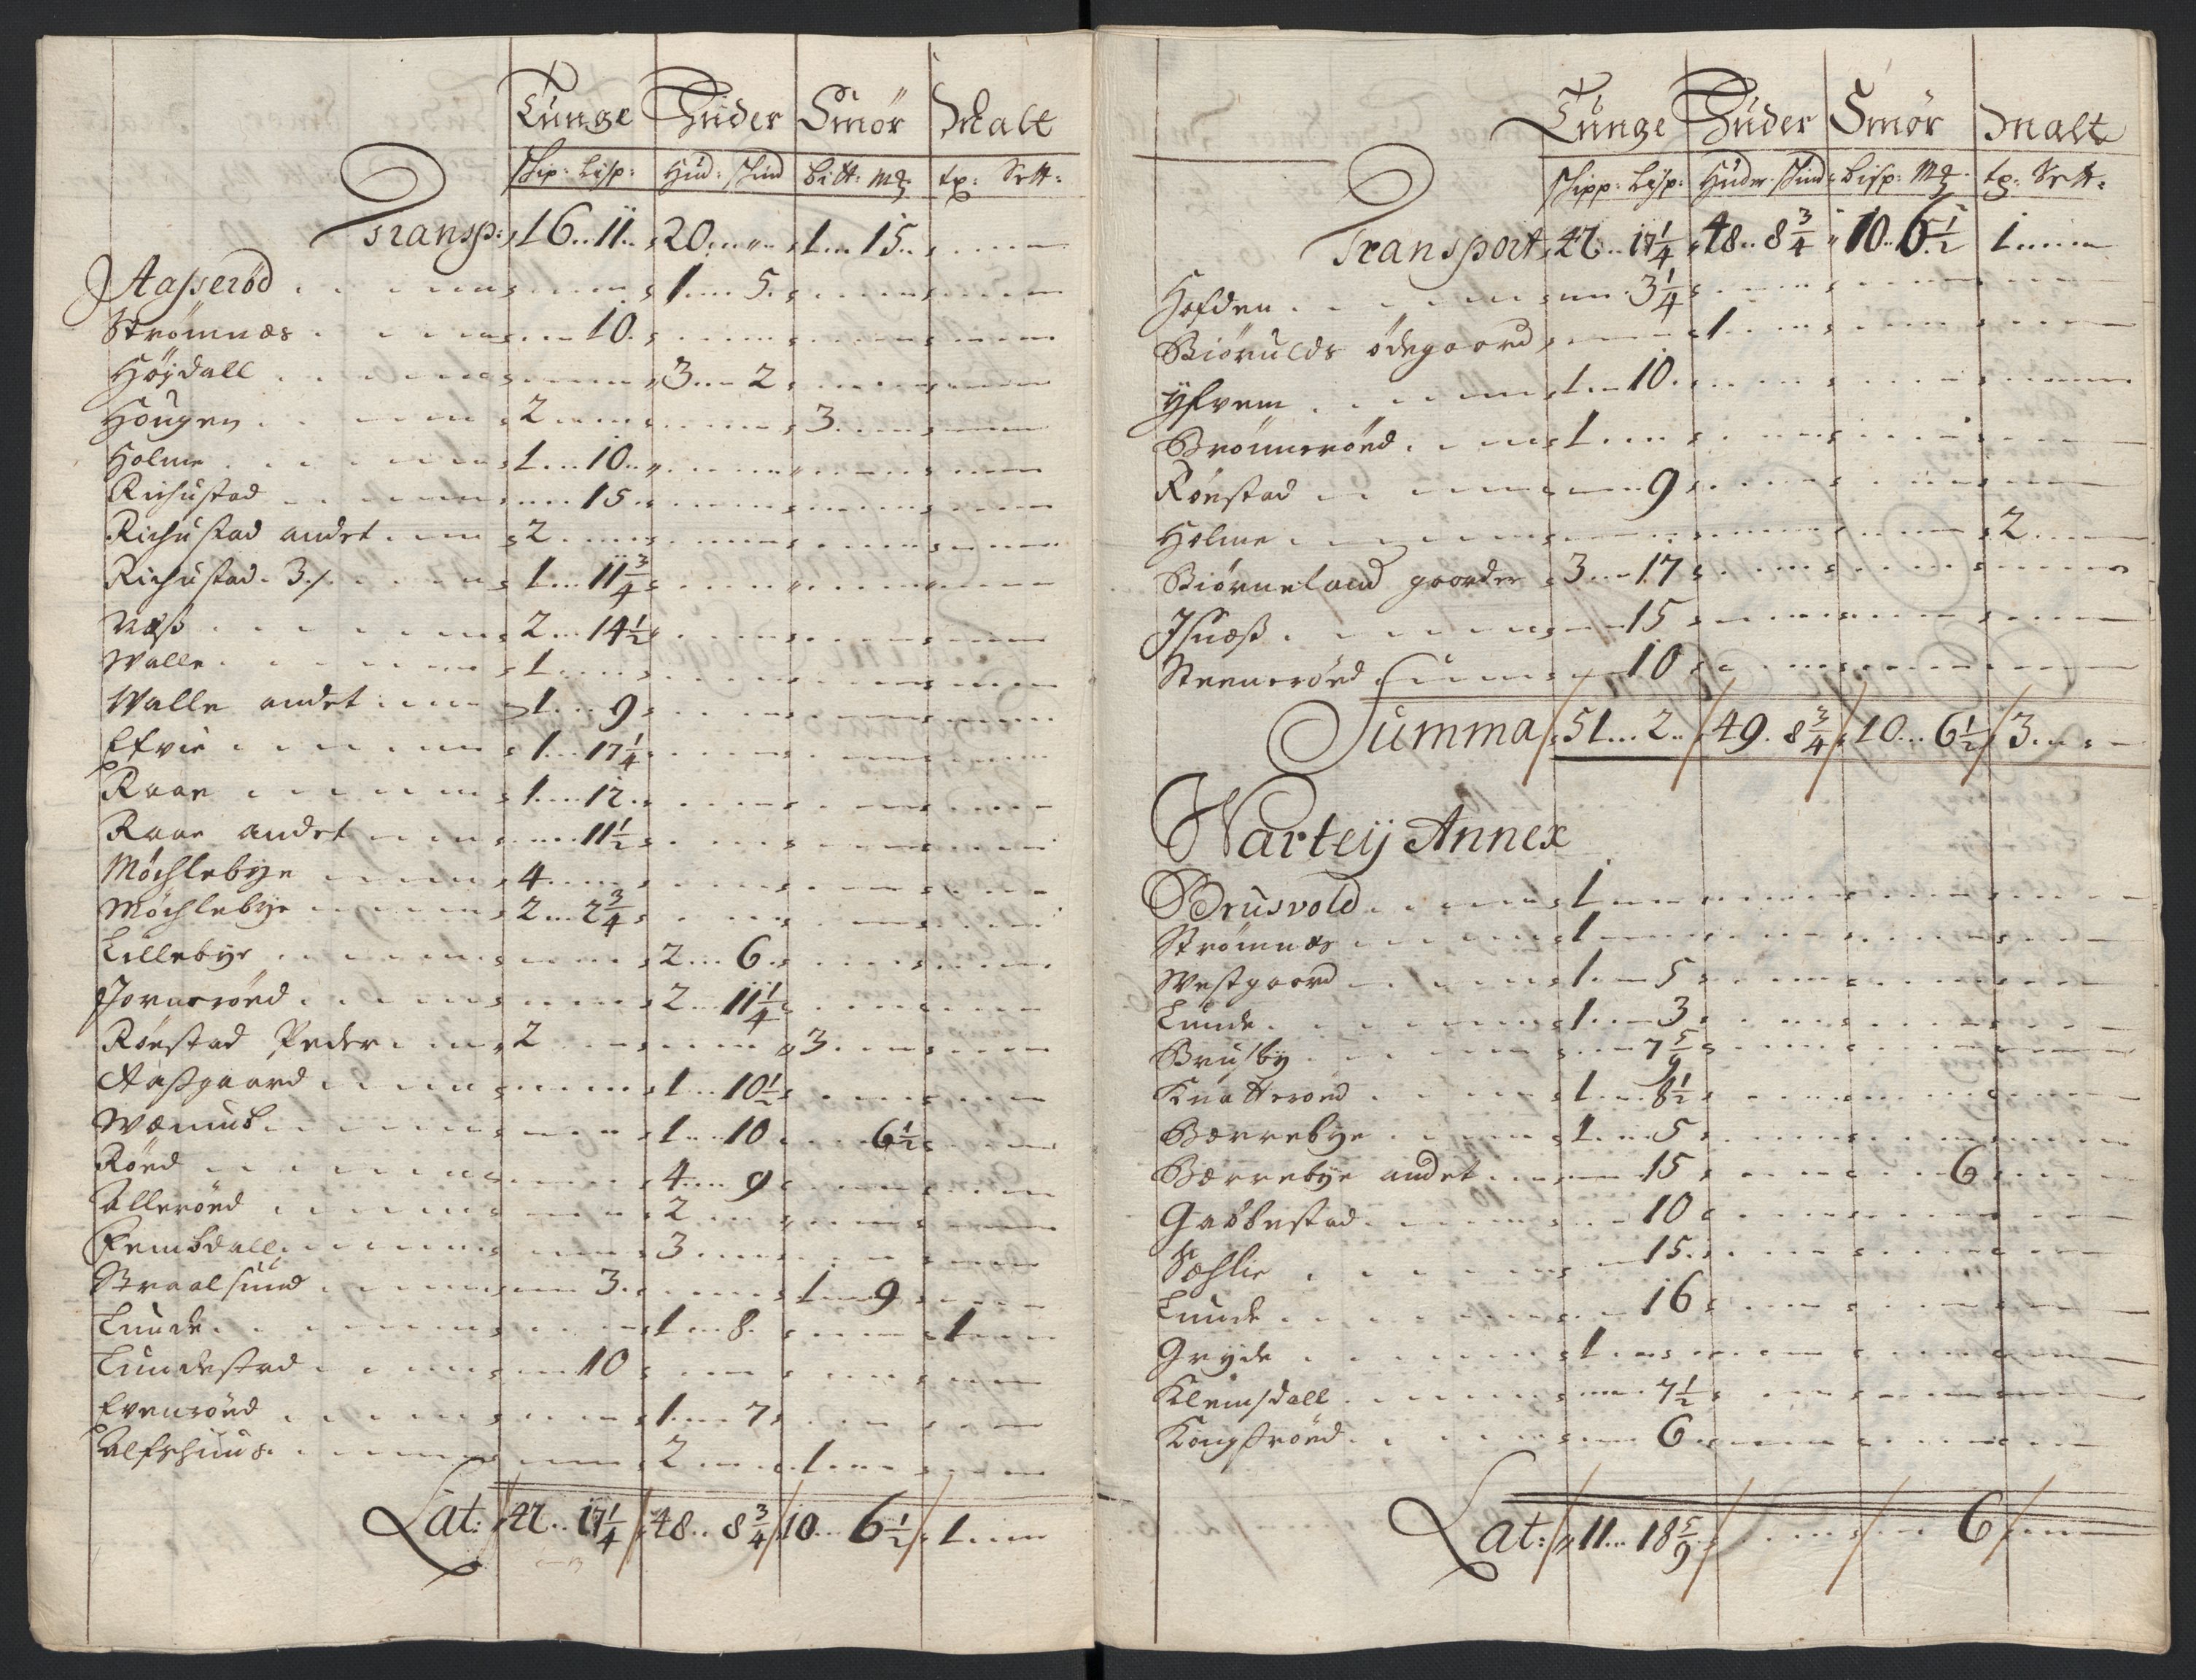 Tunge Huder Smör Malt
Skip: Lisp: Hud: Skind Bitt: Mk tp: Sett:
Transp: 16 11 20 1 15
Aasserød 1 5
Strømnæs 10
Høÿdall 3 2
Hougen 2 3
Holme 1 10
Richustad 15
Richustad andet 2
Richustad 3. 1 11 3/4
Næss 2 14 1/2
Walle 1
Walle andet 1 9
Efvie 1 17 1/4
Raae 1 12
Raae andet 11 1/2
Möchlebye 4
Möchlebye 2 2 3/4
Lillebye 2 6
Jorneröed 2 11 1/4
Röestad Peder 2 3
Aassgaard 1 10 1/2
1 10 6 1/2
Röed 4 9
Alleröed 2
Fembdall 3
Straalsund 3 1 9
Lunde 1 8 1
Lundestad 10
Evenröed 1 7
Alfshuus 2 1
Lat: 42 17 1/4 48 8 3/4 10 6 1/2 1
Tunge Huder Smör Malt
Skipp: Lisp: Huder Skind Lisp: Mk tp: Sett:
Transport 42 17 1/4 48 8 3/4 10 6 1/2 1
Hofden 3 1/4
Biörulds ödegaard 1
Ÿfrem 1 10
Brönneröed 1
Röestad 9
Holme 2
Biörneland gaarder 3 17
Isnæss 15
Steneröed 10
Summa 51 2 49 8 3/4 10 6 1/2 3
Warteij Annex
Brusvold 1
Strömnæs 1
Westgaard 1 5
Lunde 1 3
Brusby 7 5/9
Knatteroed 1 8 1/2
Børrebye 1 5
Børrebye andet 15 6
Gaåbestad 10
Sæhlie 15
Lunde 16
Grÿde 1
Kleinsdall 7 1/2
Kongsröed 6
Lat: 11 18 5/9 6